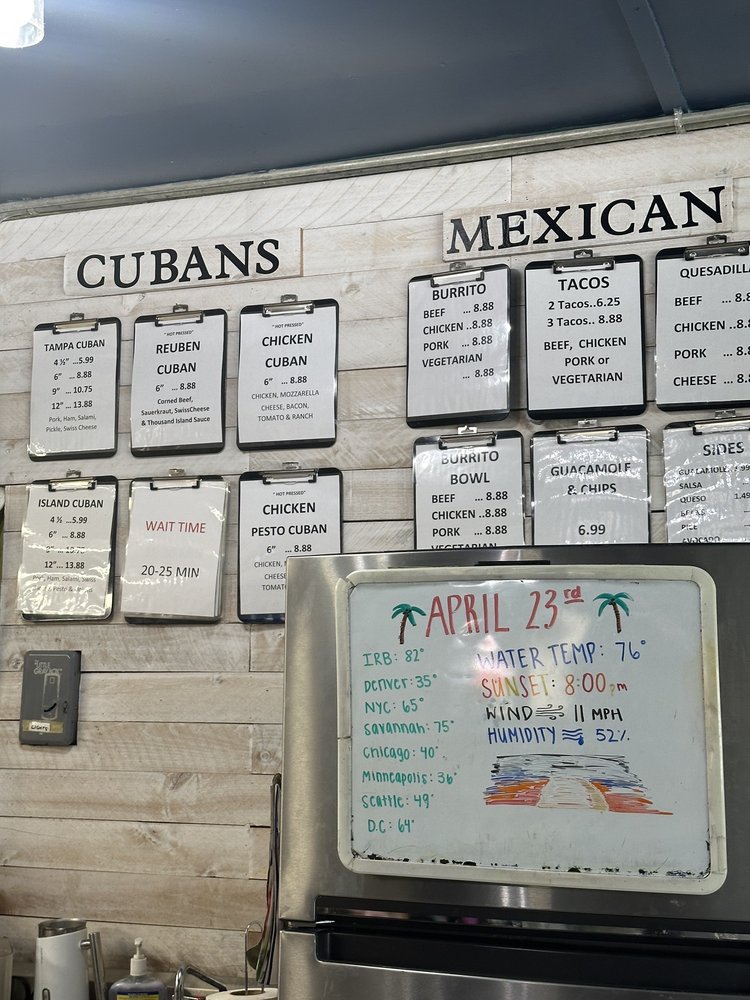 CUBANS
MEXICAN
TAMPA CUBAN
4 ½” ...5.99
6” ... 8.88
9” ... 10.75
12” ... 13.88
Pork, Ham, Salami,
Pickle, Swiss Cheese
“HOT PRESSED”
REUBEN
CUBAN
6” ... 8.88
Corned Beef,
Sauerkraut, SwissCheese
& Thousand Island Sauce
“HOT PRESSED”
CHICKEN
CUBAN
6” ... 8.88
CHICKEN, MOZZARELLA
CHEESE, BACON,
TOMATO & RANCH
BURRITO
BEEF ... 8.88
CHICKEN ..8.88
PORK ... 8.88
VEGETARIAN
... 8.88
TACOS
2 Tacos..6.25
3 Tacos.. 8.88
BEEF, CHICKEN
PORK or
VEGETARIAN
QUESADILLA
BEEF ... 8.8
CHICKEN ..8.
PORK ... 8.8
CHEESE ... 8.
ISLAND CUBAN
4 ½ ...5.99
6” ... 8.88
12”... 13.88
Pork, Ham, Salami, Swiss
WAIT TIME
20-25 MIN
“HOT PRESSED”
CHICKEN
PESTO CUBAN
6” ... 8.88
CHICKEN,
CHEESE
BURRITO
BOWL
BEEF ... 8.88
CHICKEN.. 8.88
PORK ... 8.88
VEGETARIAN
GUACAMOLE
& CHIPS
6.99
SIDES
GUACAMOLE
SALSA
QUESO
RICE
APRIL 23rd
IRB: 82°
Denver: 35°
NYC: 65°
Savannah: 75°
Chicago: 40°
Minneapolis: 36°
Seattle: 49°
D.C: 64°
WATER TEMP: 76°
SUNSET: 8:00pm
WIND 11 MPH
HUMIDITY 52%
LIGHTS